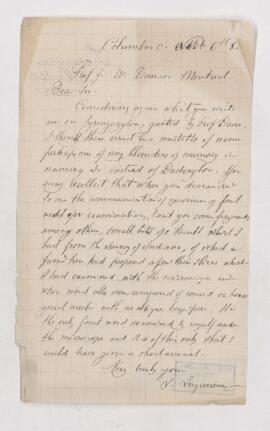 Columbus O.
Prof J. W. Dawson Montreal
Dear Sir.
Considering again what you write
me on Syringoxylon, quoted by Prof Dana,
I think there must be a mistake of some
perhaps one of my blunders of memory in
naming in instead of Dadoxylon. You
may recollect that when you demanded
to me the communication of specimens of fossil
wood for examination, I sent you some fragments
among others, small bits of which I
had from the of Indiana, of which a
friend here had prepared a few thin slices which
I had examined with the microscope and
whose wood cells were composed of round or hexa-
gonal areoles with oblique. It is
the only fossil wood examined by myself under
the microscope and it is of this only that I
could have given a short account.
Very truly yours
L. Lesquereux